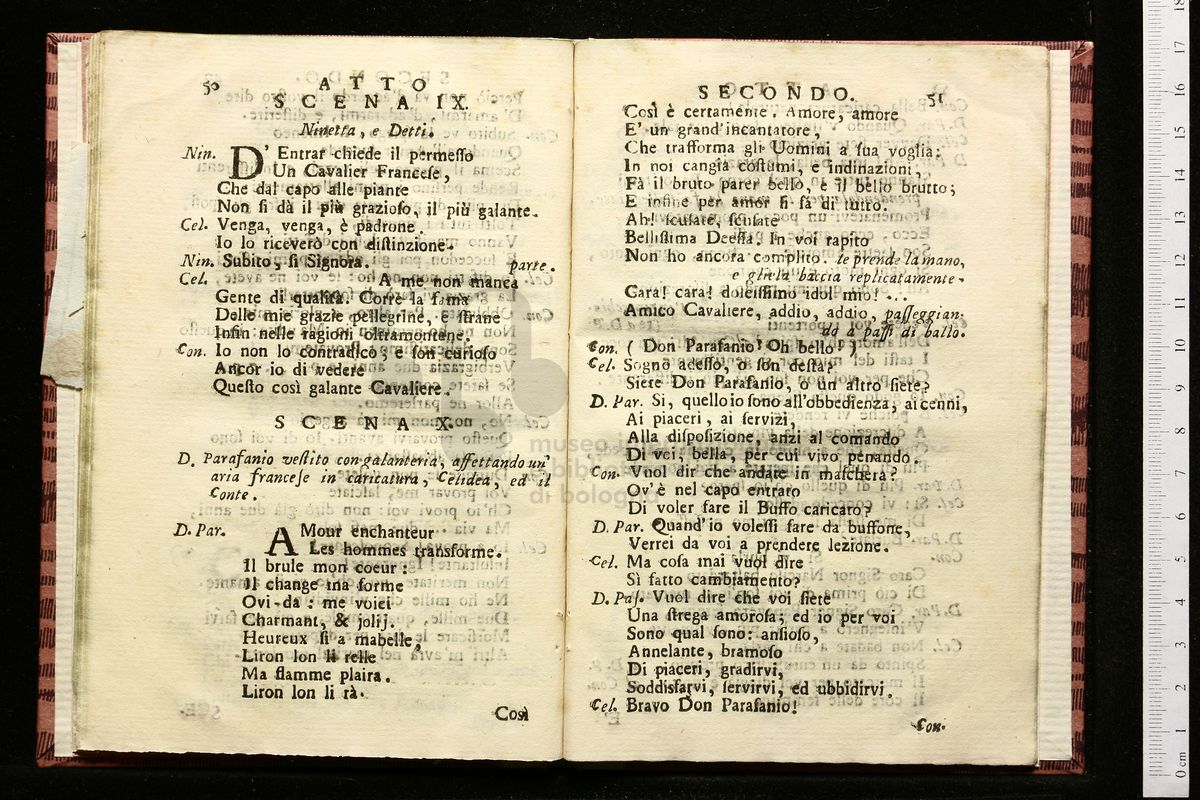 50
ATTO
SCENA IX.
Ninetta, e Detti.
Nin. D' Entrar chiede il permeſſo
Un Cavalier Franceſe,
Che dal capo alle piante
Non ſi dà il più grazioſo, il più galante.
Cel. Venga, venga, è padrone.
Io lo riceverò con diſtinzione.
Nin. Subito, ſi Signora. parte.
Cel. A me non manca
Gente di qualità. Corre la fama
Delle mie grazie pellegrine, e ſtrane
Infin nelle ragioni oltramontene.
Con. Io non lo contradico; e ſon curioſo
Ancor io di vedere
Queſto così galante Cavaliere.
SCENA X.
D. Parafanio veſtito con galanteria, affettando un'
aria franceſe in caricatura, Celidea, ed il
Conte.
D. Par. AMour enchanteur
Les hommes transforme.
Il brule mon coeur:
Il change ma forme
Ovi-da: me voici
Charmant, & jolij.
Heureux ſi a mabelle,
Liron lon li relle
Ma flamme plaira.
Liron lon li rà.
Così
SECONDO.
51
Così è certamente. Amore, amore
E' un grand'incantatore,
Che traſforma gli Uomini a ſua voglia:
In noi cangia coſtumi, e Indinazioni,
Fà il bruto parer bello, e il bello brutto;
E infine per amor ſi fà di tutto.
Ah! ſcuſate, ſcuſate
Belliſſima Deeſſa. In voi rapito
Non ho ancora complito. le prende la mano,
e gliela baccia replicatamente.
Cara! cara! dolciſſimo idol mio!...
Amico Cavaliere, addio, addio, paſſeggian-
do a paſſi di ballo.
Con. ( Don Parafanio! Oh bello! )
Cel. Sogno adeſſo, o ſon deſta?
Siete Don Parafanio, o un altro ſiete?
D. Par. Si, quello io ſono all'obbedienza, ai cenni,
Ai piaceri, ai ſervizi,
Alla diſpoſizione, anzi al comando
Di voi, bella, per cui vivo penando.
Con. Vuol dir che andate in maſchera?
Ov'è nel capo entrato
Di voler fare il Buffo caricato?
D. Par. Quand'io voleſſi fare da buffone,
Verrei da voi a prendere lezione.
Cel. Ma coſa mai vuol dire
Sì fatto cambiamento?
D. Par. Vuol dire che voi ſiete
Una ſtrega amoroſa; ed io per voi
Sono qual ſono: anſioſo,
Annelante, bramoſo
Di piaceri, gradirvi,
Soddisfarvi, ſervirvi, ed ubbidirvi.
Cel. Bravo Don Parafanio!
Con.